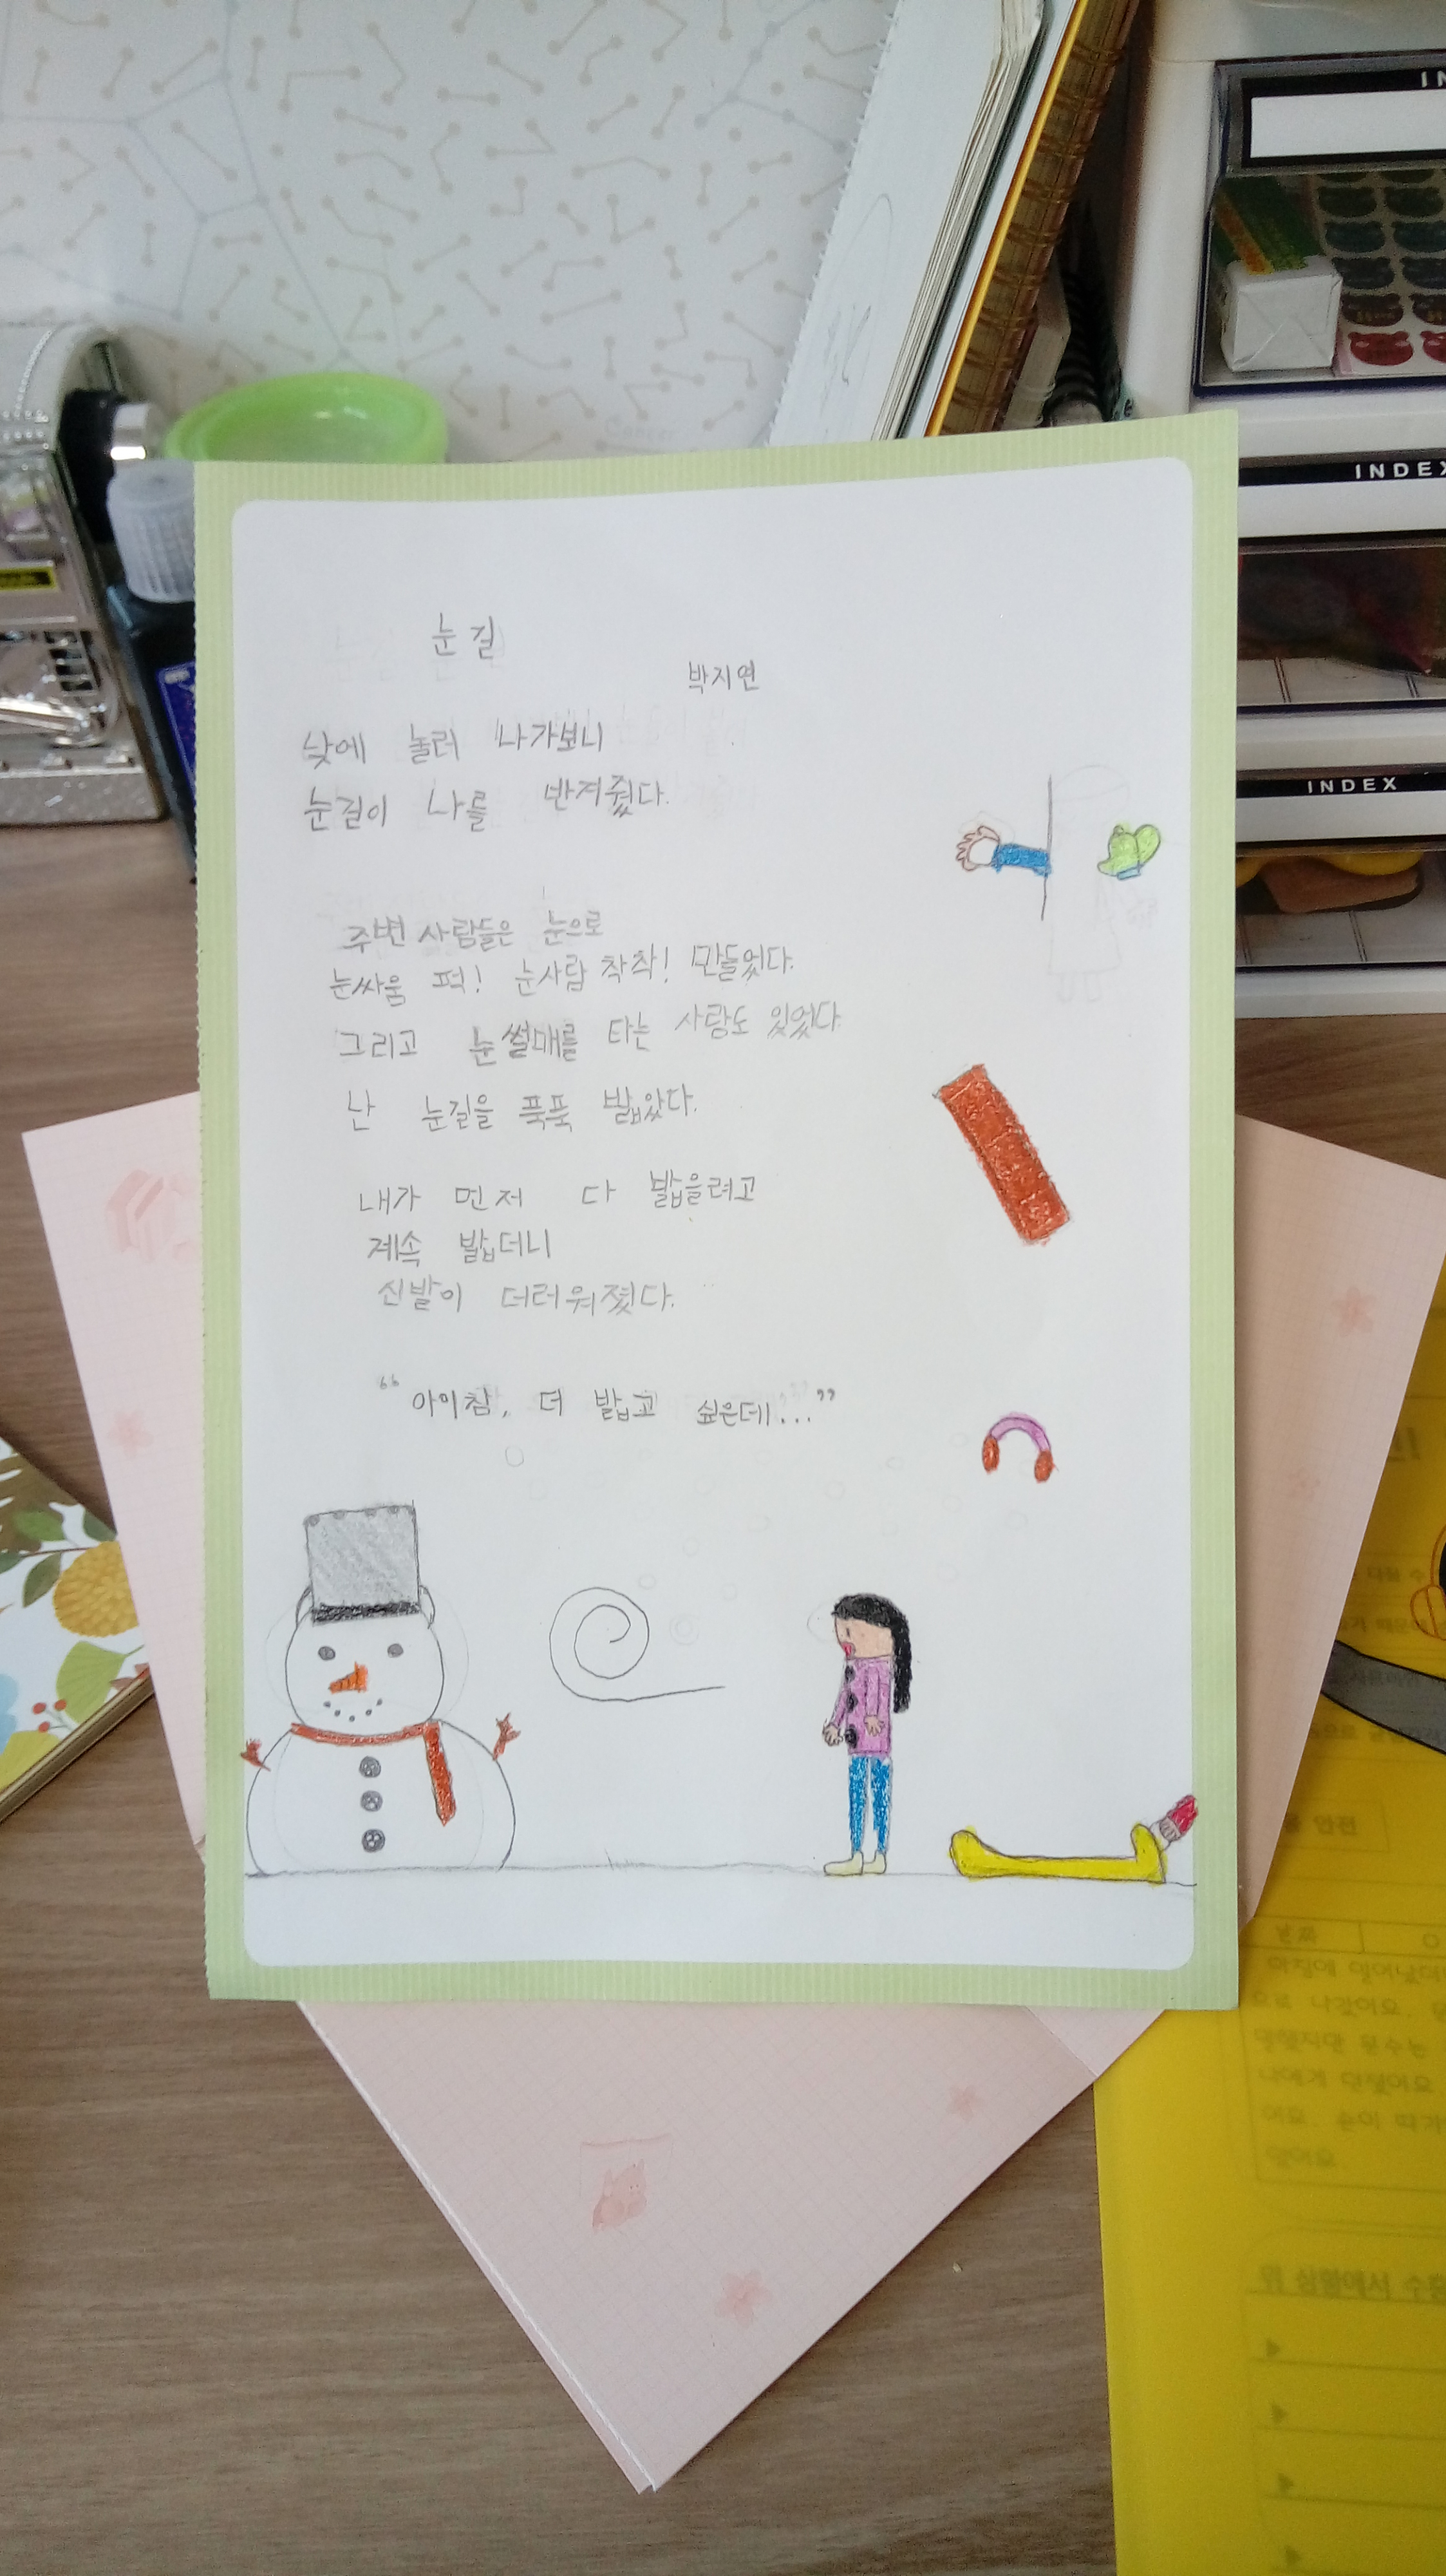 IN
INDEX
INDEX
눈길
박지연
낮에 놀러 나가보니
눈길이 나를 반겨줬다.
주변 사람들은 눈으로
눈싸움 퍽! 눈사람 착착! 만들었다.
그리고 눈썰매를 타는 사람도 있었다
난 눈길을 푹푹 밟았다.
내가 먼저 다 밟을려고
계속 밟더니
신발이 더러워졌다.
“아이참, 더 밟고 싶은데...”
안전
위 상황에서